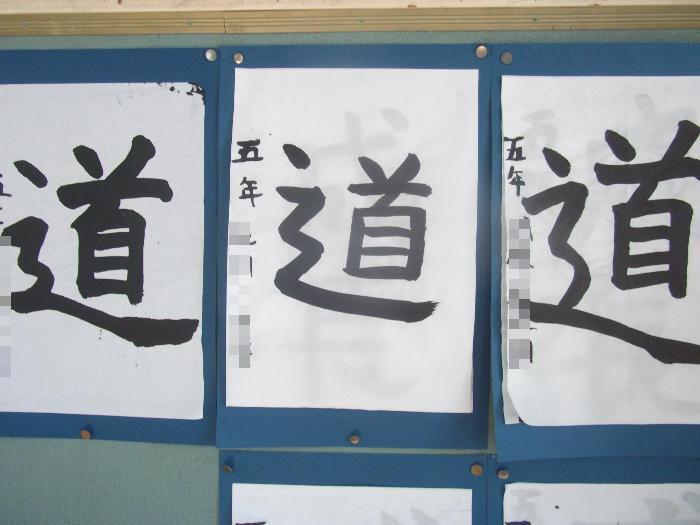 道
五年
道
五年
道
五年